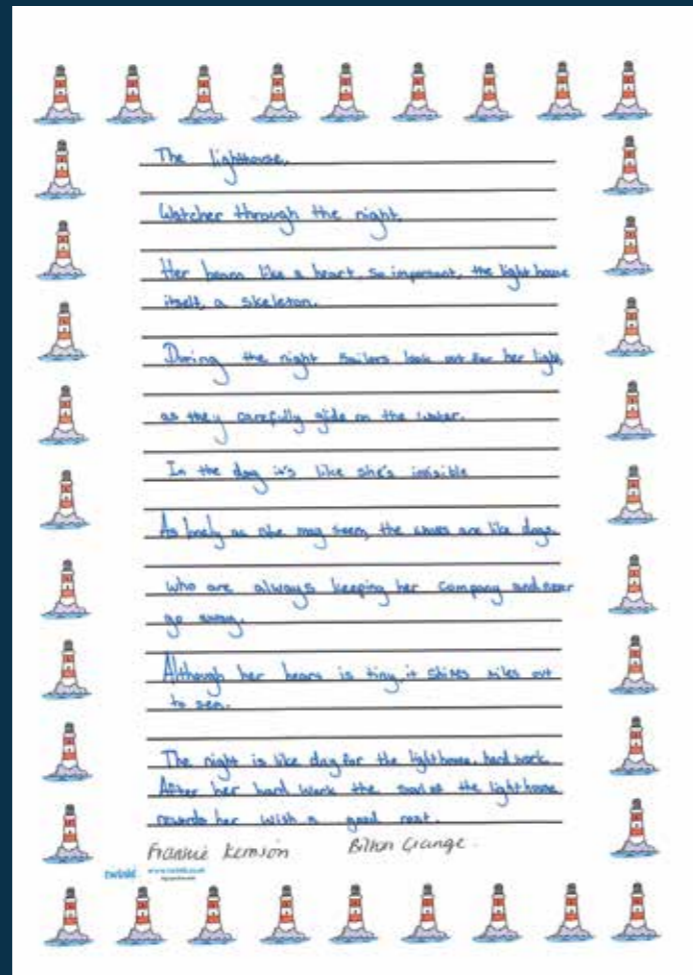 The lighthouse,
Watcher through the night,
Her beam like a heart, so important, the light house
itself, a skeleton.
During the night sailors look out for her light,
as they carefully glide on the water.
In the day it's like she's invisible
As lonely as she may seem, the waves are like dogs
who are always keeping her company and never
go away.
Although her is tiny, it shines miles out
to sea.
The night is like day for the lighthouse, hard work.
After her hard work the of the lighthouse
rewards her with a good rest.
Frankie Bilton Grange
twinkl www.twinkl.co.uk